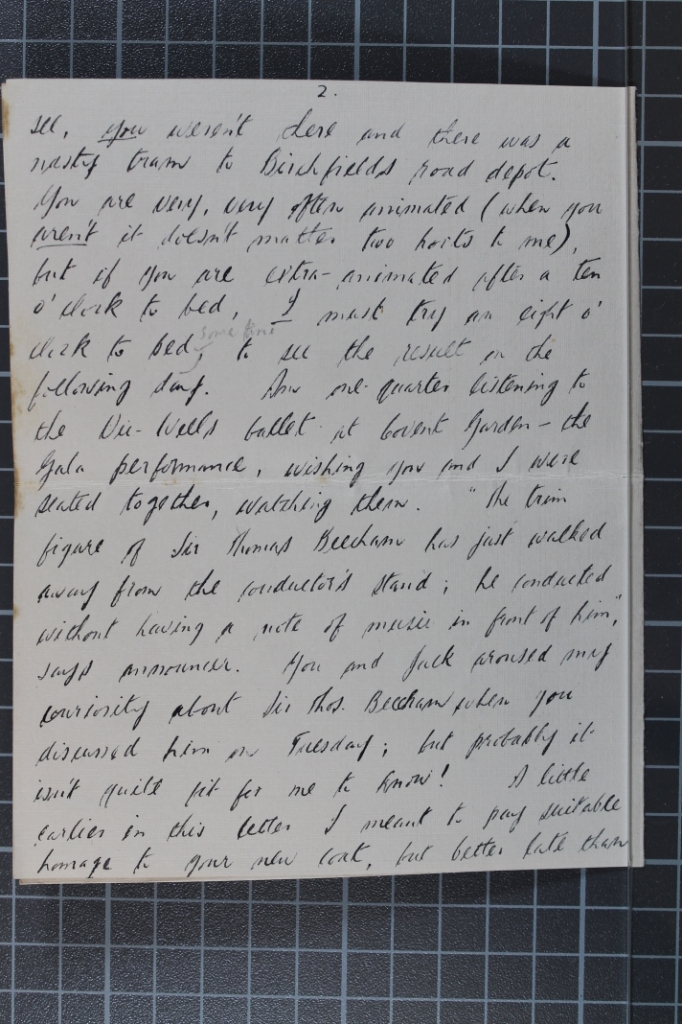 2.
see, you weren't there and there was a
nasty tram to Birchfields road depot.
You are very, very often animated (when you
aren't it doesn't matter two hoots to me),
but if you are extra-animated after a ten
o'clock to bed, I must try an eight o'
clock to bed, sometime to see the result on the
following day. Am one-quarter listening to
the Vic-Wells ballet at Covent Garden – the
Gala performance, wishing you and I were
seated together, watching them. "The trim
figure of Sir Thomas Beecham has just walked
away from the conductor's stand; he conducted
without having a note of music in front of him",
says announcer. You and Jack aroused my
curiosity about Sir Thos. Beecham when you
discussed him on Tuesday; but probably it
isn't quite fit for me to know! A little
earlier in this letter I meant to pay suitable
homage to your new coat, but better late than